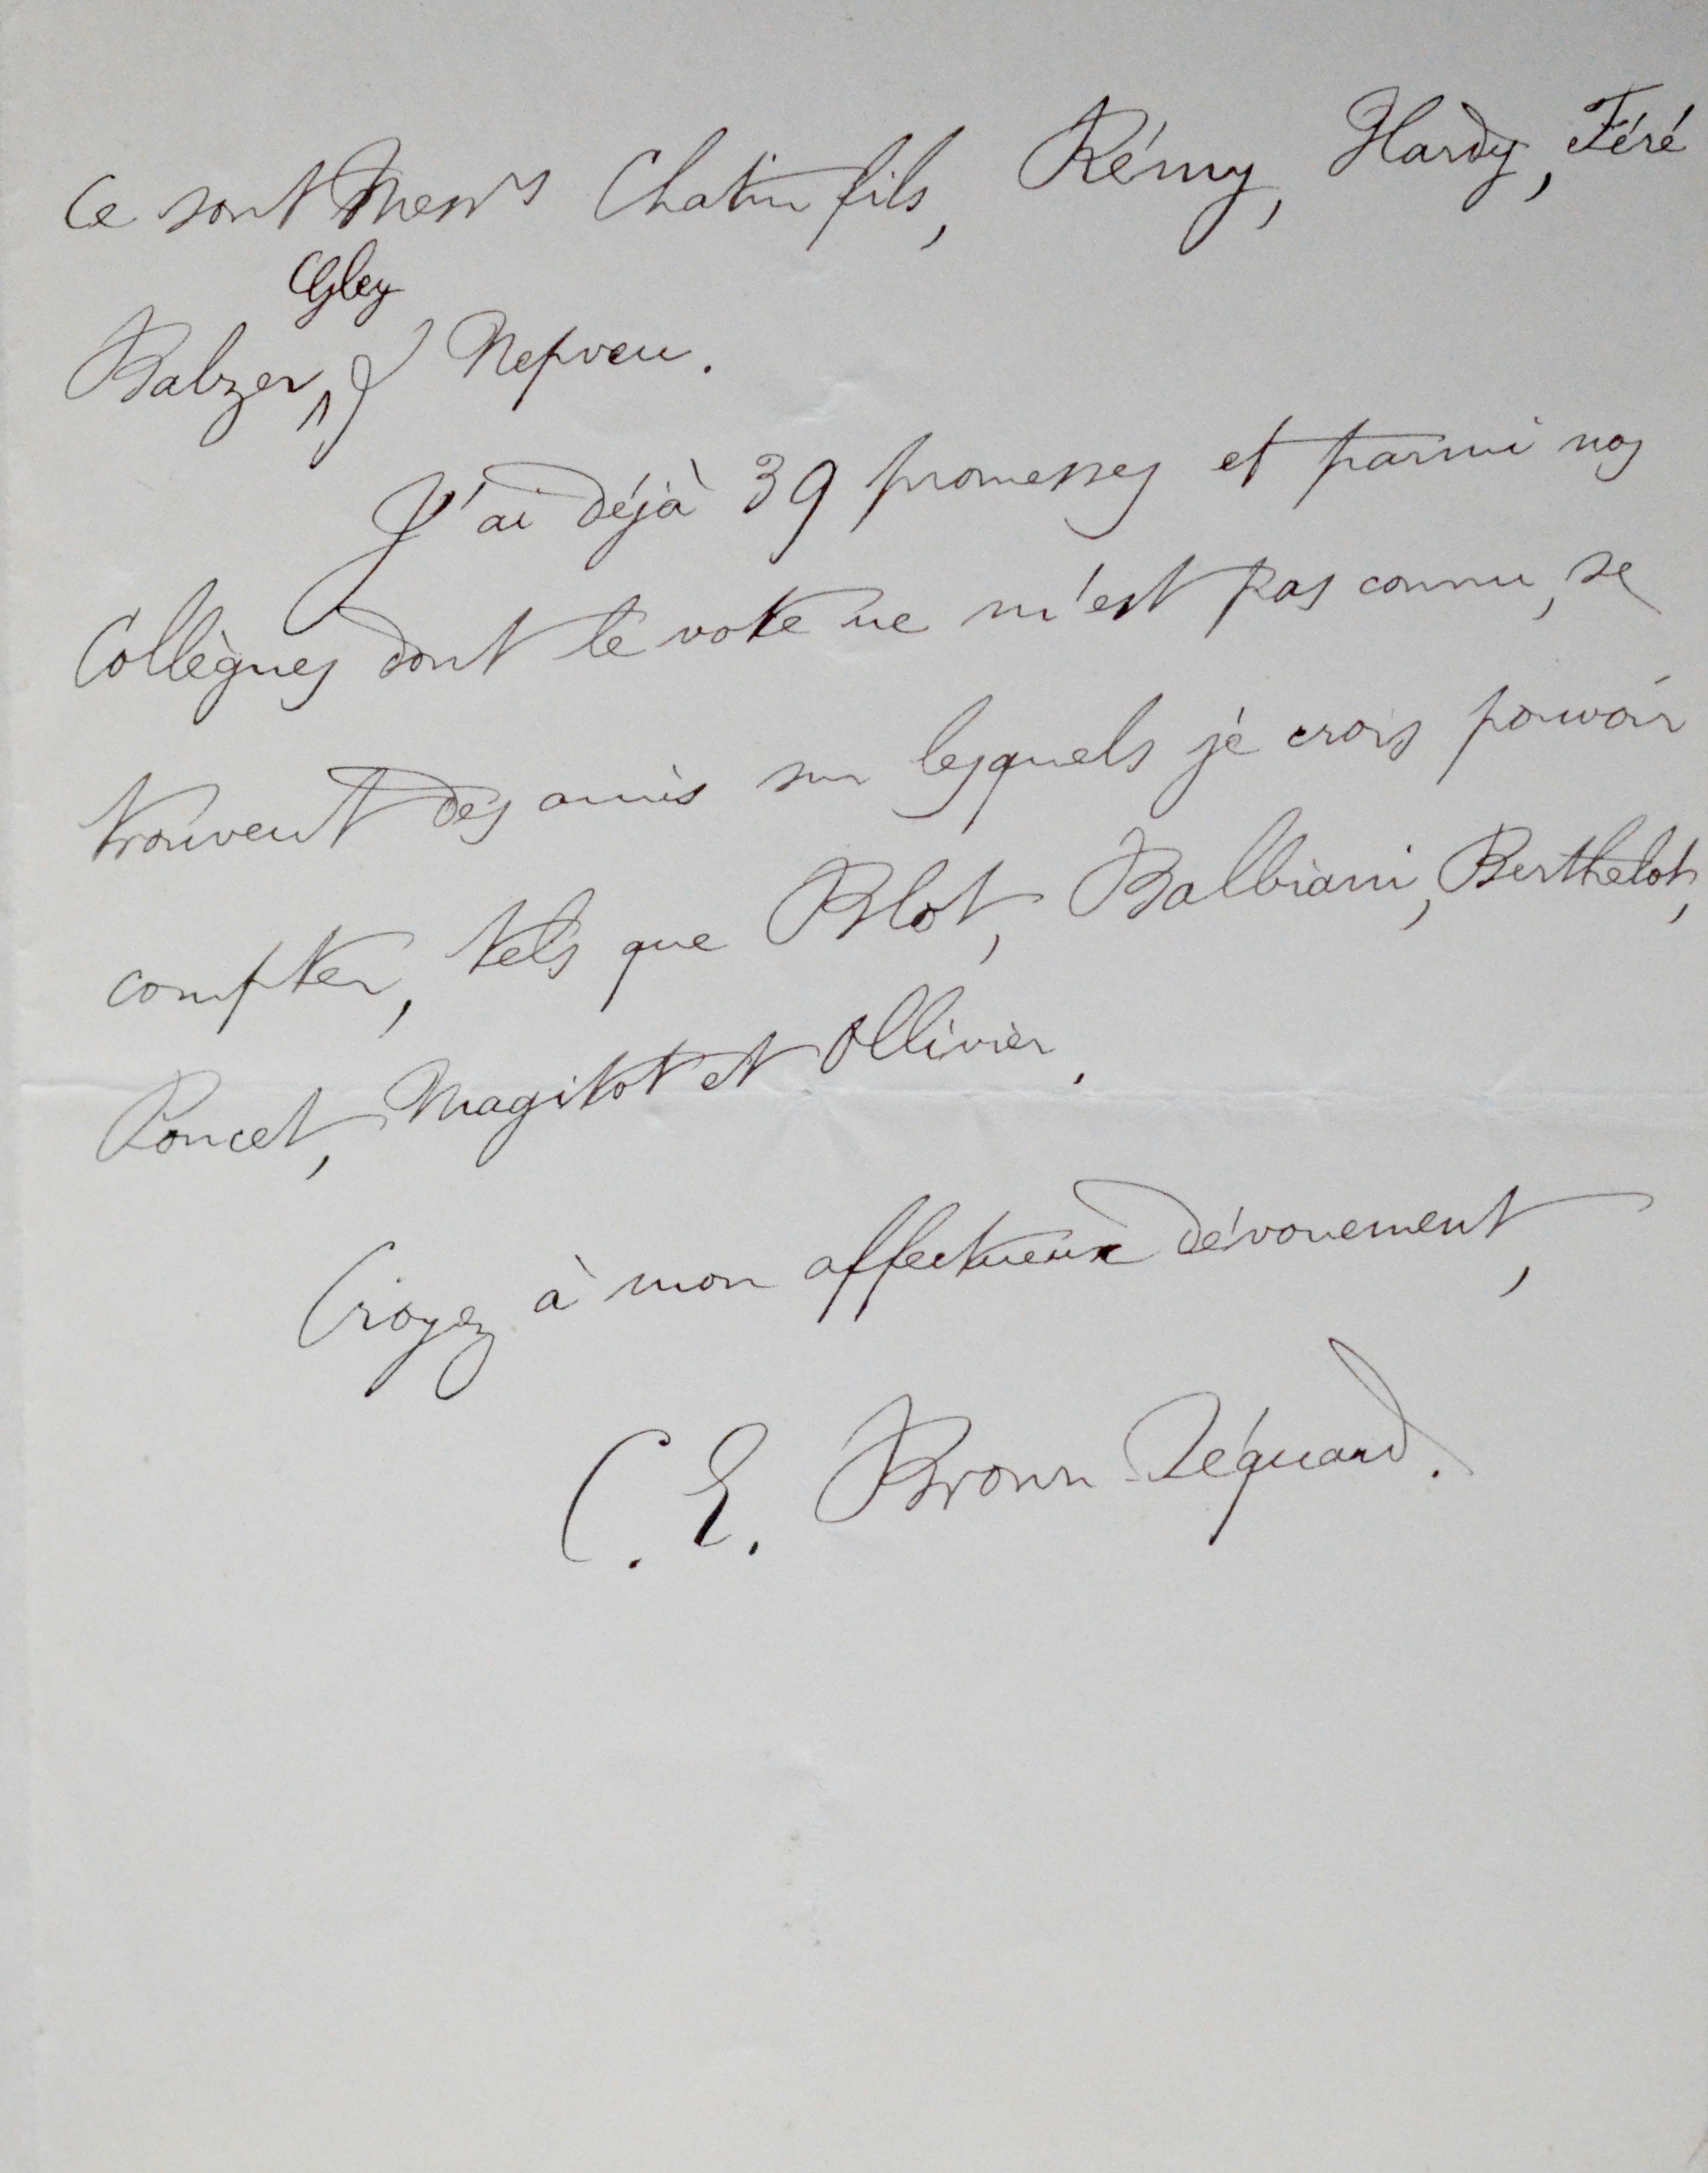 Ce sont Messrs Chatin fils, Rémy, Hardy, Féré
Gley
Balzer, & Nepveu.
J'ai déjà 39 promesses et parmi nos
Collègues dont le vote ne m'est pas connu, se
trouvent des amis sur lesquels je crois pouvoir
compter, tels que Blot, Balbiani, Berthelot,
Poncet, Magitot et Ollivier.
Croyez à mon affectueux dévouement,
C. E. Brown-Séquard.